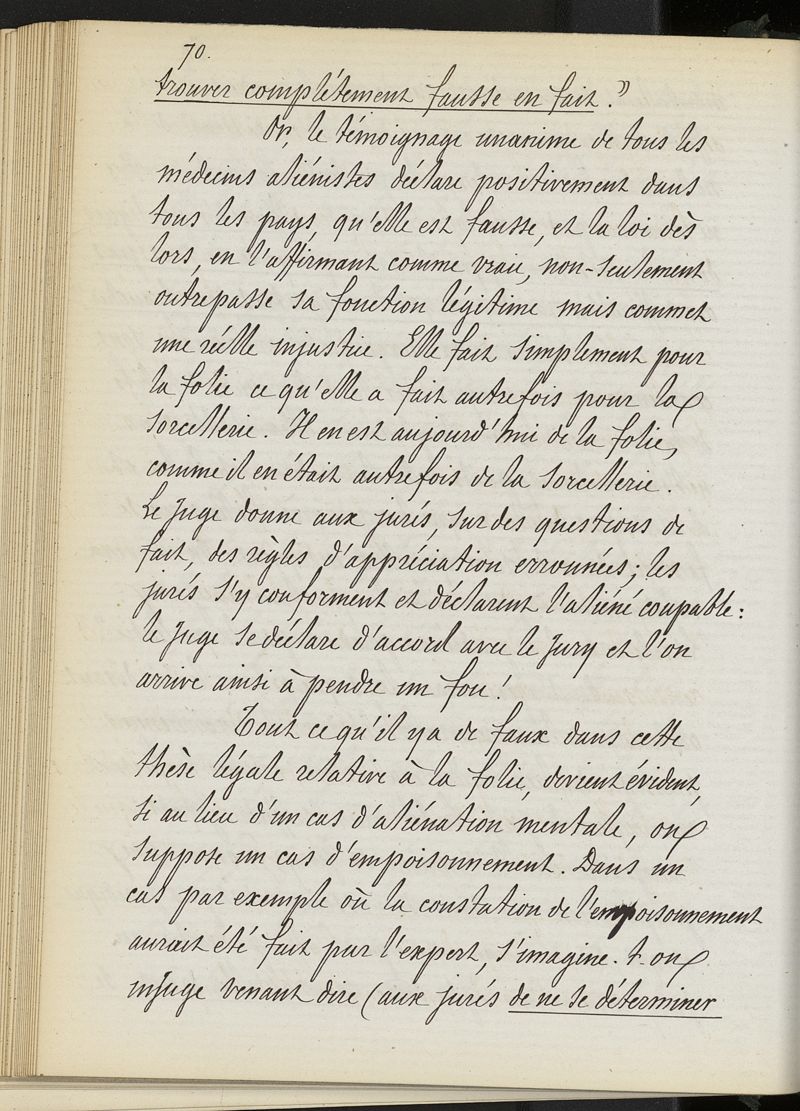 70.
trouver complétement fausse en fait."
Or, le témoignage unanime de tous les
médecins aliénistes déclare positivement dans
tous les pays, qu'elle est fausse, et la loi dès
lors, en l'affirmant comme vraie, non-seulement
outrepasse sa fonction légitime mais commet
une réelle injustice. Elle fait simplement pour
la folie ce qu'elle a fait autrefois pour la
sorcellerie. Il en est aujourd'hui de la folie,
comme il en était autrefois de la sorcellerie.
Le juge donne aux jurés, sur des questions de
fait, des règles d'appréciation erronnées; les
jurés s'y conforment et déclarent l'aliéné coupable:
le juge se déclare d'accord avec le Jury et l'on
arrive ainsi à pendre un fou!
Tout ce qu'il y a de faux dans cette
thèse légale relative à la folie, devient évident,
si au lieu d'un cas d'aliénation mentale, on
suppose un cas d'empoisonnement. Dans un
cas par exemple où la constation de l'empoisonnement
aurait été fait par l'expert, s'imagine-t-on
un juge venant dire (aux jurés de ne se déterminer